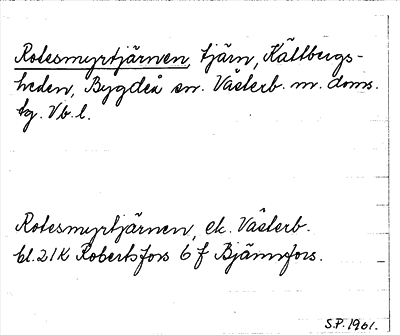 Rotesmyrtjärnen, tjärn, Kältbergs-
heden, Bygdeå sn. Västerb. m. doms.
tg. Vb. l.
Rotesmyrtjärnen, ek. Västerb.
bl. 21K Robertsfors 6 f Bjännfors.
S.P. 1961.